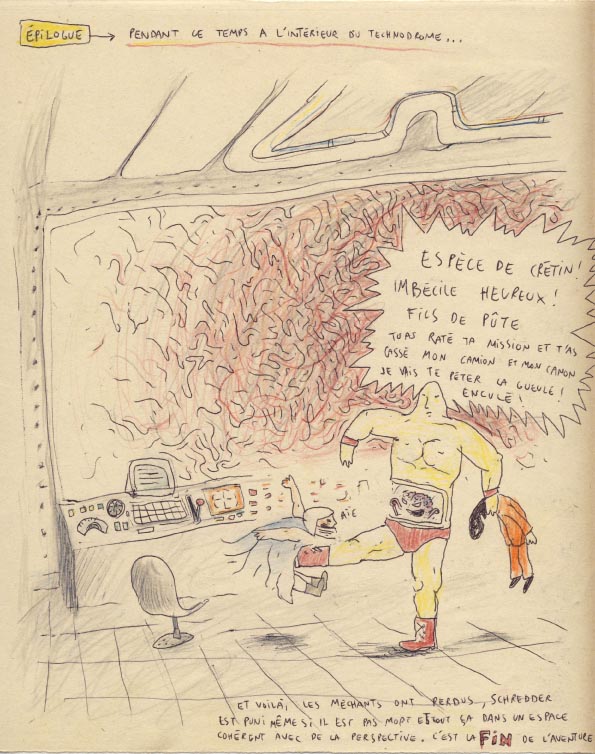 ÉPILOGUE → PENDANT CE TEMPS A L'INTÉRIEUR DU TECHNODROME...
ESPÈCE DE CRÉTIN!
IMBÉCILE HEUREUX!
FILS DE PÛTE
TU AS RATÉ TA MISSION ET T'AS
CASSÉ MON CAMION ET MON CANON
JE VAIS TE PÉTER LA GUEULE!
ENCULÉ!
AÏE
ET VOILÀ, LES MÉCHANTS ONT PERDUS, SCHREDDER
EST PUNI MÊME SI IL EST PAS MORT ET TOUT ÇA DANS UN ESPACE
COHÉRENT AVEC DE LA PERSPECTIVE. C'EST LA FIN DE L'AVENTURE